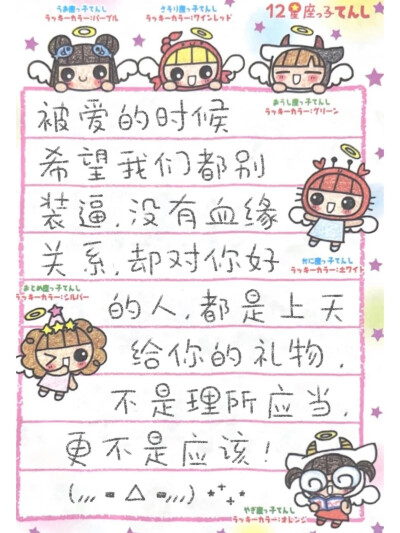 12星座っ子てんし
うお座っ子てんし
ラッキーカラー:パープル
さそり座っ子てんし
ラッキーカラー:ワインレッド
おうし座っ子てんし
ラッキーカラー:グリーン
被爱的时候
希望我们都别
装逼,没有血缘
关系,却对你好
かに座っ子てんし
ラッキーカラー:ホワイト
おとめ座っ子てんし
ラッキーカラー:シルバー
的人,都是上天
给你的礼物,
不是理所应当,
更不是应该!
(,,, = △ =,,,) *⁺₊*
やぎ座っ子てんし
ラッキーカラー:オレンジ